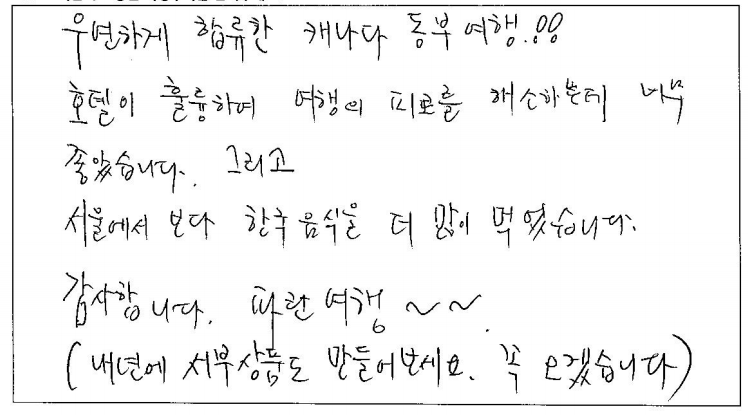 우연하게 합류한 캐나다 동부여행.!!
호텔이 훌륭하여 여행의 피로를 해소하는데 너무
좋았습니다. 그리고
서울에서 보다 한국음식을 더 많이 먹었습니다.
감사합니다. 파란여행 ~~.
(내년에 서부상품도 만들어보세요. 꼭 오겠습니다)